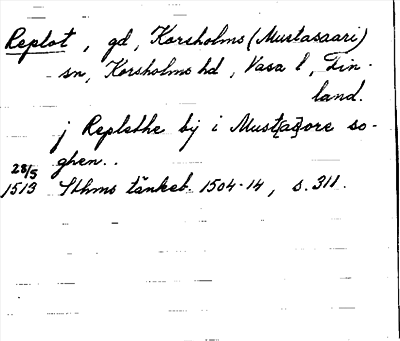 Replot, gd, Korsholms (Mustasaari)
sn, Korsholms hd, Vasa l, Fin-
land.
j Replethe bÿ i Must[az]ore so-
ghen..
28/5
1513 Sthms tänkeb. 1504-14, s. 311.